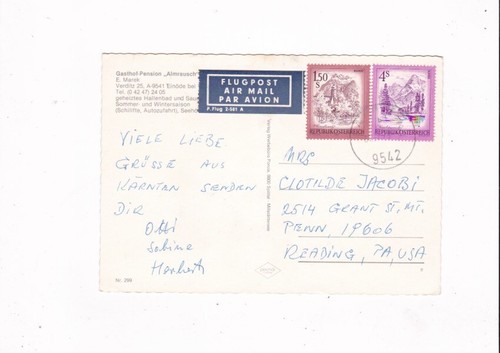 Gasthof-Pension „Almrausch"
E. Marek
Verditz 25, A-9541 Einöde bei
Tel. (0 42 47) 24 05
geheiztes Hallenbad und Sau
Sommer- und Wintersaison
FLUGPOST
AIR MAIL
PAR AVION
P. Flug 2.581 A
1.50
S
REPUBLIK ÖSTERREICH
4 S
REPUBLIK ÖSTERREICH
9542
VIELE LIEBE
GRÜSSE AUS
KÄRNTEN SENDEN
DIR
Otti
Sabine
Herbert
MRS
CLOTILDE JACOBI
2514 GRANT ST. MT.
PENN, 19606
READING, PA, USA
Nr. 299